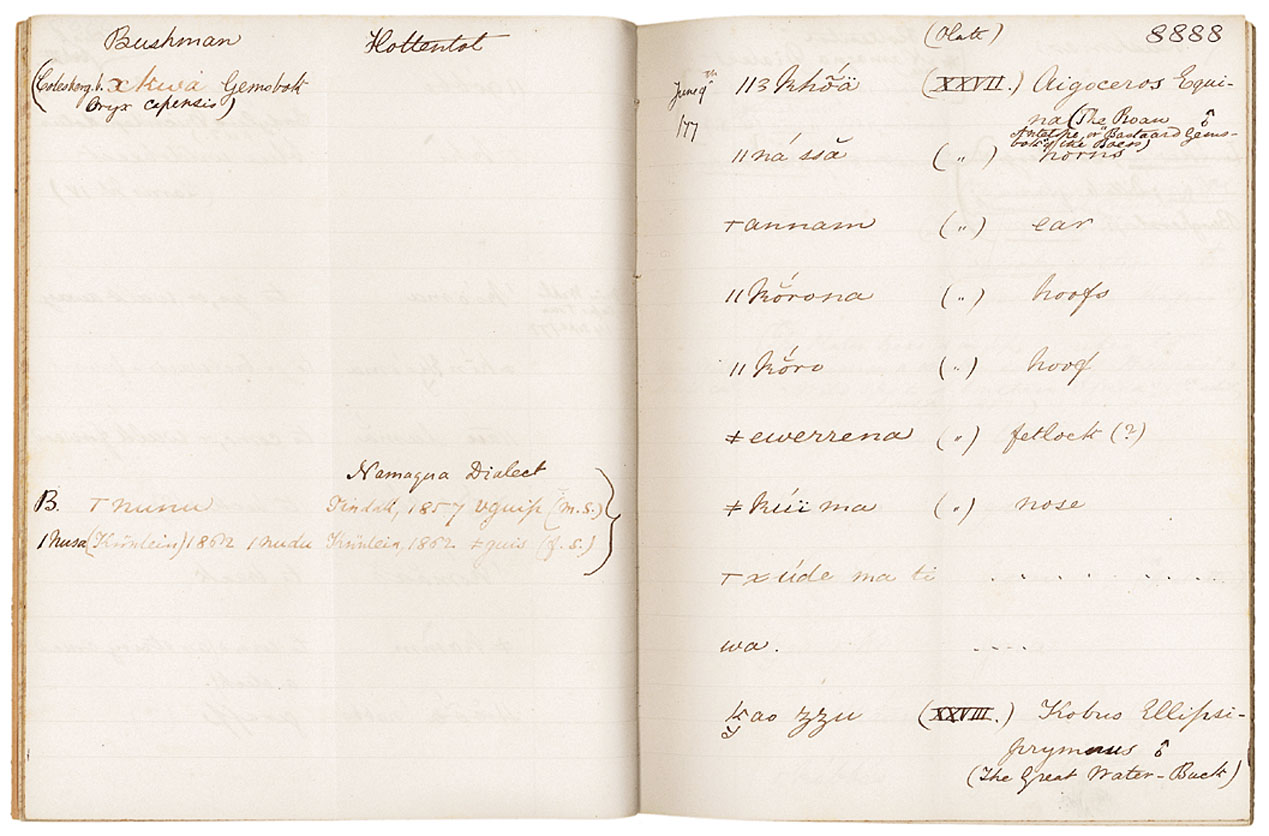 Bushman Hottentot
(Colesberg b. xkwá Gemsbok
Oryx capensis)
Namaqua Dialect
B. ꞇ nunu Tindall, 1857 vguip (m.s.)
ǀnusa (Krönlein) 1862 ǀnudu Krönlein, 1862 ǂguis (f.s.)
(Plate) 8888
June 9th ǁ3 khōä (XXVII.) Aigoceros Equi-
/77 na (The Roan ♂
Antelope, or "Bastaard Gems-
bok" of the Boers)
ǁná ssă („) horns
ꞇannam („) ear
ǁkŏrona („) hoofs
ǁkŏro („) hoof
ǂewerrena („) fetlock (?)
ǂkúï ma („) nose
ꞇ x úde ma ti . . . . . . .
wa. . . . .
kao zzu (XXVIII.) Kobus Ellipsi-
prymnus ♂
(The Great Water-Buck)